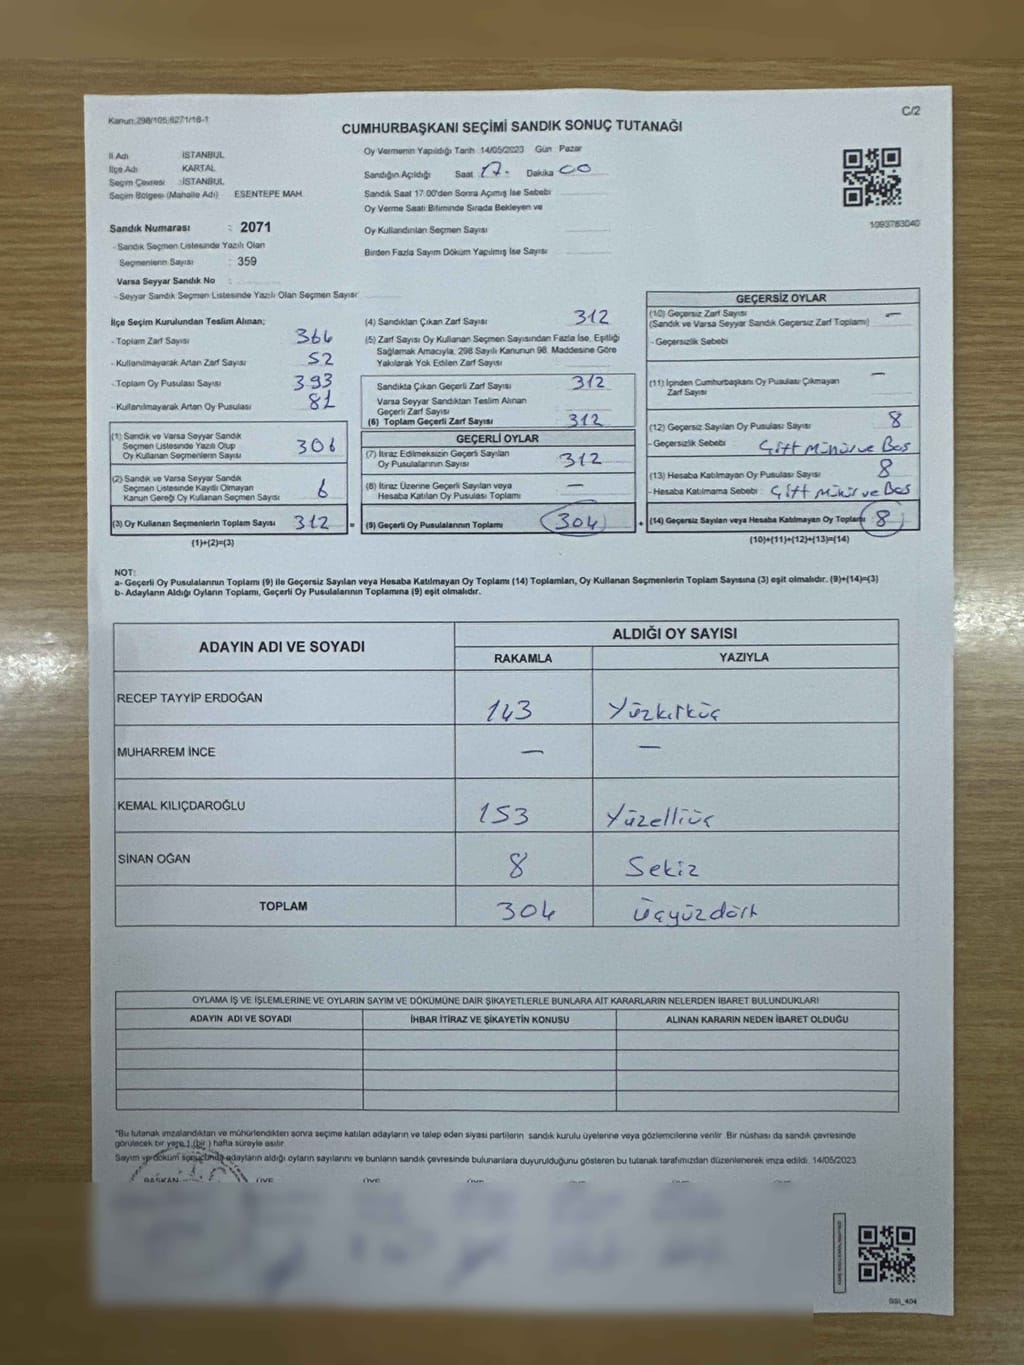 Kanun:298/105,6271/18-1
C/2
CUMHURBAŞKANI SEÇİMİ SANDIK SONUÇ TUTANAĞI
İl Adı İSTANBUL
İlçe Adı KARTAL
Seçim Çevresi :İSTANBUL
Seçim Bölgesi (Mahalle Adı) ESENTEPE MAH.
Sandık Numarası : 2071
- Sandık Seçmen Listesinde Yazılı Olan
Seçmenlerin Sayısı : 359
Varsa Seyyar Sandık No :
- Seyyar Sandık Seçmen Listesinde Yazılı Olan Seçmen Sayısı
Oy Vermenin Yapıldığı Tarih 14/05/2023 Gün Pazar
Sandığın Açıldığı Saat 17.- Dakika 00
Sandık Saat 17:00'den Sonra Açımış İse Sebebi
Oy Verme Saati Bitiminde Sırada Bekleyen ve
Oy Kullandırılan Seçmen Sayısı
Birden Fazla Sayım Döküm Yapılmış İse Sayısı
1093783040
İlçe Seçim Kurulundan Teslim Alınan;
- Toplam Zarf Sayısı 364
- Kullanılmayarak Artan Zarf Sayısı 52
- Toplam Oy Pusulası Sayısı 393
- Kullanılmayarak Artan Oy Pusulası 81
(1) Sandık ve Varsa Seyyar Sandık
Seçmen Listesinde Yazılı Olup
Oy Kullanan Seçmenlerin Sayısı 306
(2) Sandık ve Varsa Seyyar Sandık
Seçmen Listesinde Kayıtlı Olmayan
Kanun Gereği Oy Kullanan Seçmen Sayısı 6
(3) Oy Kullanan Seçmenlerin Toplam Sayısı 312 =
(1)+(2)=(3)
(4) Sandıktan Çıkan Zarf Sayısı 312
(5) Zarf Sayısı Oy Kullanan Seçmen Sayısından Fazla İse, Eşitliği
Sağlamak Amacıyla, 298 Sayılı Kanunun 98. Maddesine Göre
Yakılarak Yok Edilen Zarf Sayısı
Sandıkta Çıkan Geçerli Zarf Sayısı 312
Varsa Seyyar Sandıktan Teslim Alınan
Geçerli Zarf Sayısı
(6) Toplam Geçerli Zarf Sayısı 312
GEÇERLİ OYLAR
(7) İtiraz Edilmeksizin Geçerli Sayılan
Oy Pusulalarının Sayısı 312
(8) İtiraz Üzerine Geçerli Sayılan veya
Hesaba Katılan Oy Pusulası Toplamı —
(9) Geçerli Oy Pusulalarının Toplamı 304 +
GEÇERSİZ OYLAR
(10) Geçersiz Zarf Sayısı —
(Sandık ve Varsa Seyyar Sandık Geçersiz Zarf Toplamı)
- Geçersizlik Sebebi
(11) İçinden Cumhurbaşkanı Oy Pusulası Çıkmayan
Zarf Sayısı —
(12) Geçersiz Sayılan Oy Pusulası Sayısı 8
- Geçersizlik Sebebi : Çift Mühür ve Boş
(13) Hesaba Katılmayan Oy Pusulası Sayısı 8
- Hesaba Katılmama Sebebi : Çift Mühür ve Boş
(14) Geçersiz Sayılan veya Hesaba Katılmayan Oy Toplamı 8
(10)+(11)+(12)+(13)=(14)
NOT:
a- Geçerli Oy Pusulalarının Toplamı (9) ile Geçersiz Sayılan veya Hesaba Katılmayan Oy Toplamı (14) Toplamları, Oy Kullanan Seçmenlerin Toplam Sayısına (3) eşit olmalıdır. (9)+(14)=(3)
b- Adayların Aldığı Oyların Toplamı, Geçerli Oy Pusulalarının Toplamına (9) eşit olmalıdır.
ADAYIN ADI VE SOYADI ALDIĞI OY SAYISI
RAKAMLA YAZIYLA
RECEP TAYYİP ERDOĞAN 143 Yüzkırküç
MUHARREM İNCE — —
KEMAL KILIÇDAROĞLU 153 Yüzelliüç
SİNAN OĞAN 8 Sekiz
TOPLAM 304 Üçyüzdört
OYLAMA İŞ VE İŞLEMLERİNE VE OYLARIN SAYIM VE DÖKÜMÜNE DAİR ŞİKAYETLERLE BUNLARA AİT KARARLARIN NELERDEN İBARET BULUNDUKLARI
ADAYIN ADI VE SOYADI İHBAR İTİRAZ VE ŞİKAYETİN KONUSU ALINAN KARARIN NEDEN İBARET OLDUĞU
"Bu tutanak imzalandıktan ve mühürlendikten sonra seçime katılan adayların ve talep eden siyasi partilerin sandık kurulu üyelerine veya gözlemcilerine verilir. Bir nüshası da sandık çevresinde
görülecek bir yere 1 (bir ) hafta süreyle asılır.
Sayım ve döküm sonucunda adayların aldığı oyların sayılarını ve bunların sandık çevresinde bulunanlara duyurulduğunu gösteren bu tutanak tarafımızdan düzenlenerek imza edildi. 14/05/2023
BAŞKAN ÜYE ÜYE ÜYE ÜYE ÜYE